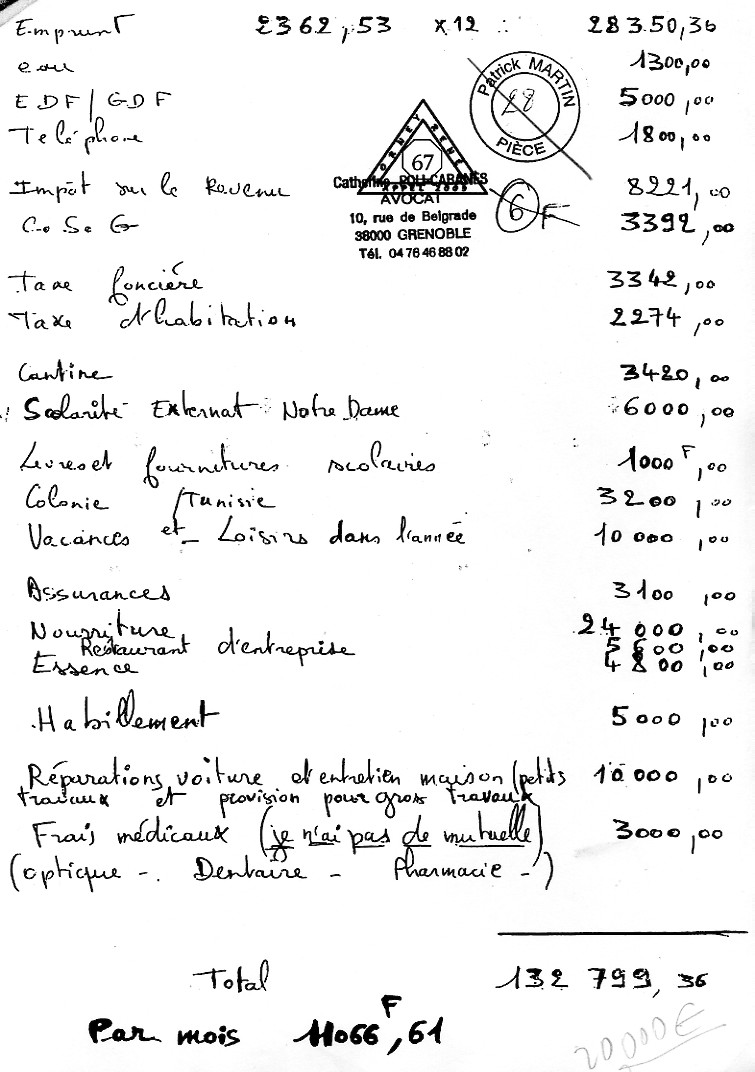 Emprunt 2362,53 x12 : 28350,36
eau 1300,00
EDF/GDF 5000,00
Teléphone 1800,00
Impôt sur le Revenu 8221,00
C.S.G 3392,00
Patrick MARTIN
28
PIÈCE
67
Catherine
AVOCAT
10, rue de Belgrade
38000 GRENOBLE
Tél. 04 76 46 88 02
6 F
Taxe foncière 3342,00
Taxe d'habitation 2274,00
Cantine 3420,00
Scolarité Externat Notre Dame 6000,00
Livres et fournitures scolaires 1000 F,00
Colonie /Tunisie 3200,00
Vacances et - Loisirs dans l'année 10 000,00
Assurances 3100,00
Nourriture 24 000,00
Restaurant d'entreprise 5600,00
Essence 4800,00
Habillement 5000,00
Réparations voiture et entretien maison (petits 10 000,00
travaux et provision pour gros travaux
Frais médicaux (je n'ai pas de mutuelle) 3000,00
(optique -. Dentaire - Pharmacie -)
Total 132 799,36
Par mois 11066 F,61
20000€